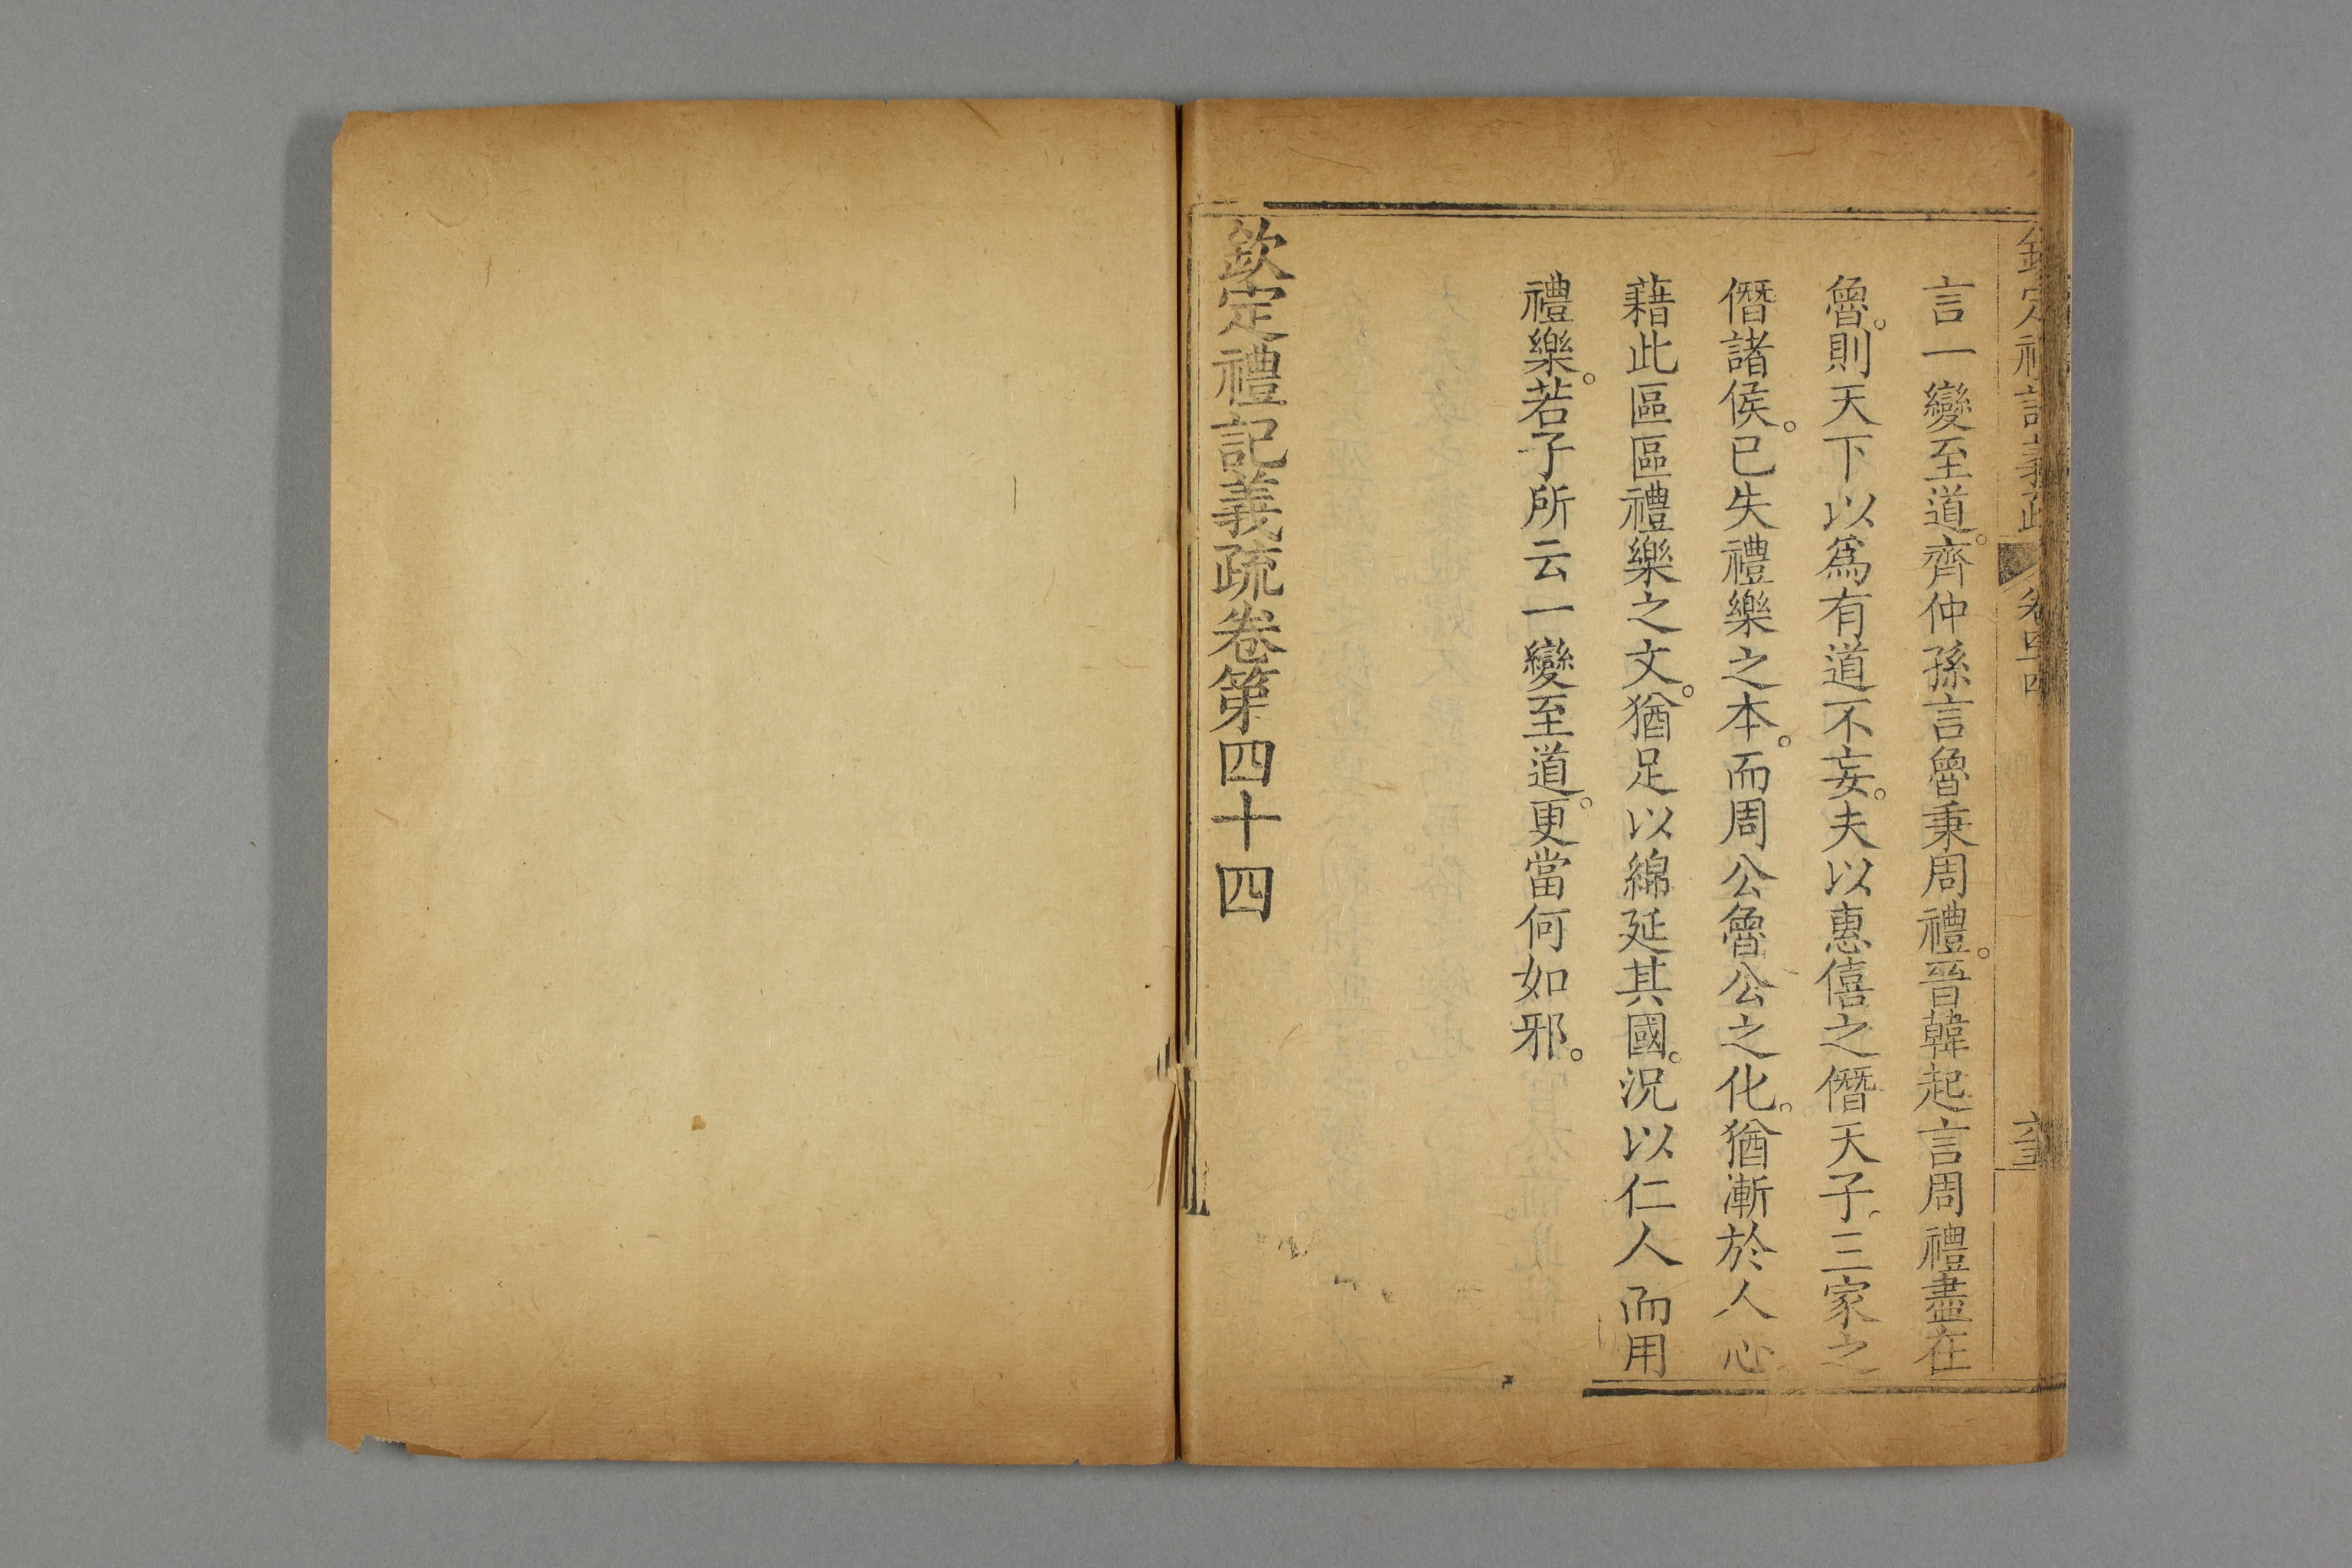 欽定禮記義疏 卷四十四
言一變至道。齊仲孫言魯秉周禮。晉韓起言周禮盡在
魯。則天下以爲有道不妄。夫以惠僖之僭天子。三家之
僭諸侯。已失禮樂之本。而周公魯公之化。猶漸於人心
藉此區區禮樂之文。猶足以綿延其國。況以仁人而用
禮樂。若子所云一變至道。更當何如邪。
欽定禮記義疏卷第四十四